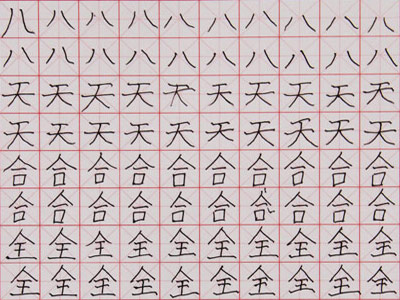 八八八八八八八八八八
八八八八八八八八八八
天天天天天天天天天天
天天天天天天天天天天
合合合合合合合合合合
合合合合合合合合合合
全全全全全全全全全全
全全全全全全全全全全